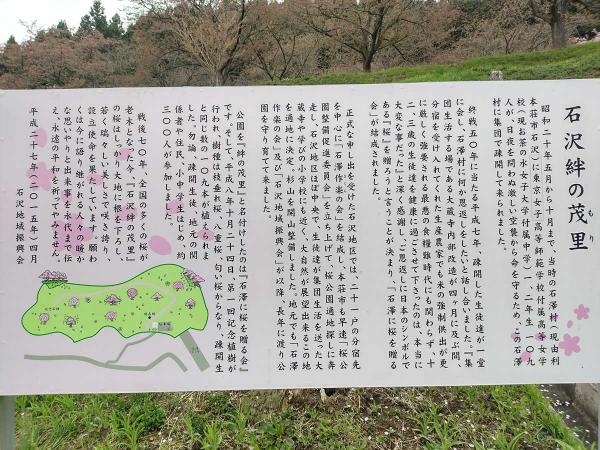 石沢絆の茂里
もり
昭和二十年五月から十月まで、当時の石澤村(現由利
本荘市石沢)に東京女子高等師範学校付属高等女学
校(現お茶の水女子大学付属中学)一、二年生一〇九
人が、日夜を問わぬ激しい空襲から命を守るため、この石澤
村に集団で疎開して来られました。
終戦五〇年に当たる平成七年、疎開した生徒達が一堂
に会し「石澤に何かお恩返しをしたい」と話し合いました。『集
団生活する場である大蔵寺内部改造が四ヶ月に及ぶ間、
分宿を受け入れてくれた生産農家でも米の強制供出が更
に厳しく強要される最悪の食糧難時代にも関わらず、十
二、三歳の生徒達を健康に過ごさせて下さったのは、本当に
大変な事だった』と深く感謝し、ご恩返しに日本のシンボルで
ある『桜』を贈ろうと言うことが決まり、「石澤に桜を贈る
会」が結成されました。
正式な申し出を受けた石沢地区では、二十一戸の分宿先
を中心に「石澤作楽の会」を結成し、本荘市も早速「桜公
園整備促進委員会」を立ち上げて、桜公園適地探しに奔
走し、石沢地区ほぼ中央で、生徒達が集団生活を送った大
蔵寺や学びの小学校にも近く、大自然が展望出来るこの地
を適地に決定、杉山を開山整備しました。地元でも「石澤
作楽の会」及び「石沢地域振興会」が以降、長年に渡り公
園を守り育てて来ました。
公園を『絆の茂里』と名付けしたのは『石澤に桜を贈る会』
です。そして、平成八年十月二十四日、第一回記念植樹が
行われ、樹種は枝垂れ桜、八重桜、匂い桜からなり、疎開生
と同じ数の一〇九本が植えられま
した。勿論、疎開生徒、地元の関
係者や住民、小中学生はじめ、約
三〇〇人が参加しました。
戦後七〇年、全国の多くの桜が
老木となった今、『石沢絆の茂里』
の桜はしっかり大地に根を下ろし、
若く瑞々しい美しさで咲き誇り、
設立使命を果たしています。願わ
くは今に語り継がれる人々の暖か
な思いやりと出来事を永代まで伝
え、永遠の平和を祈ってやみません。
平成二十七年(二〇一五年)四月
石沢地域振興会